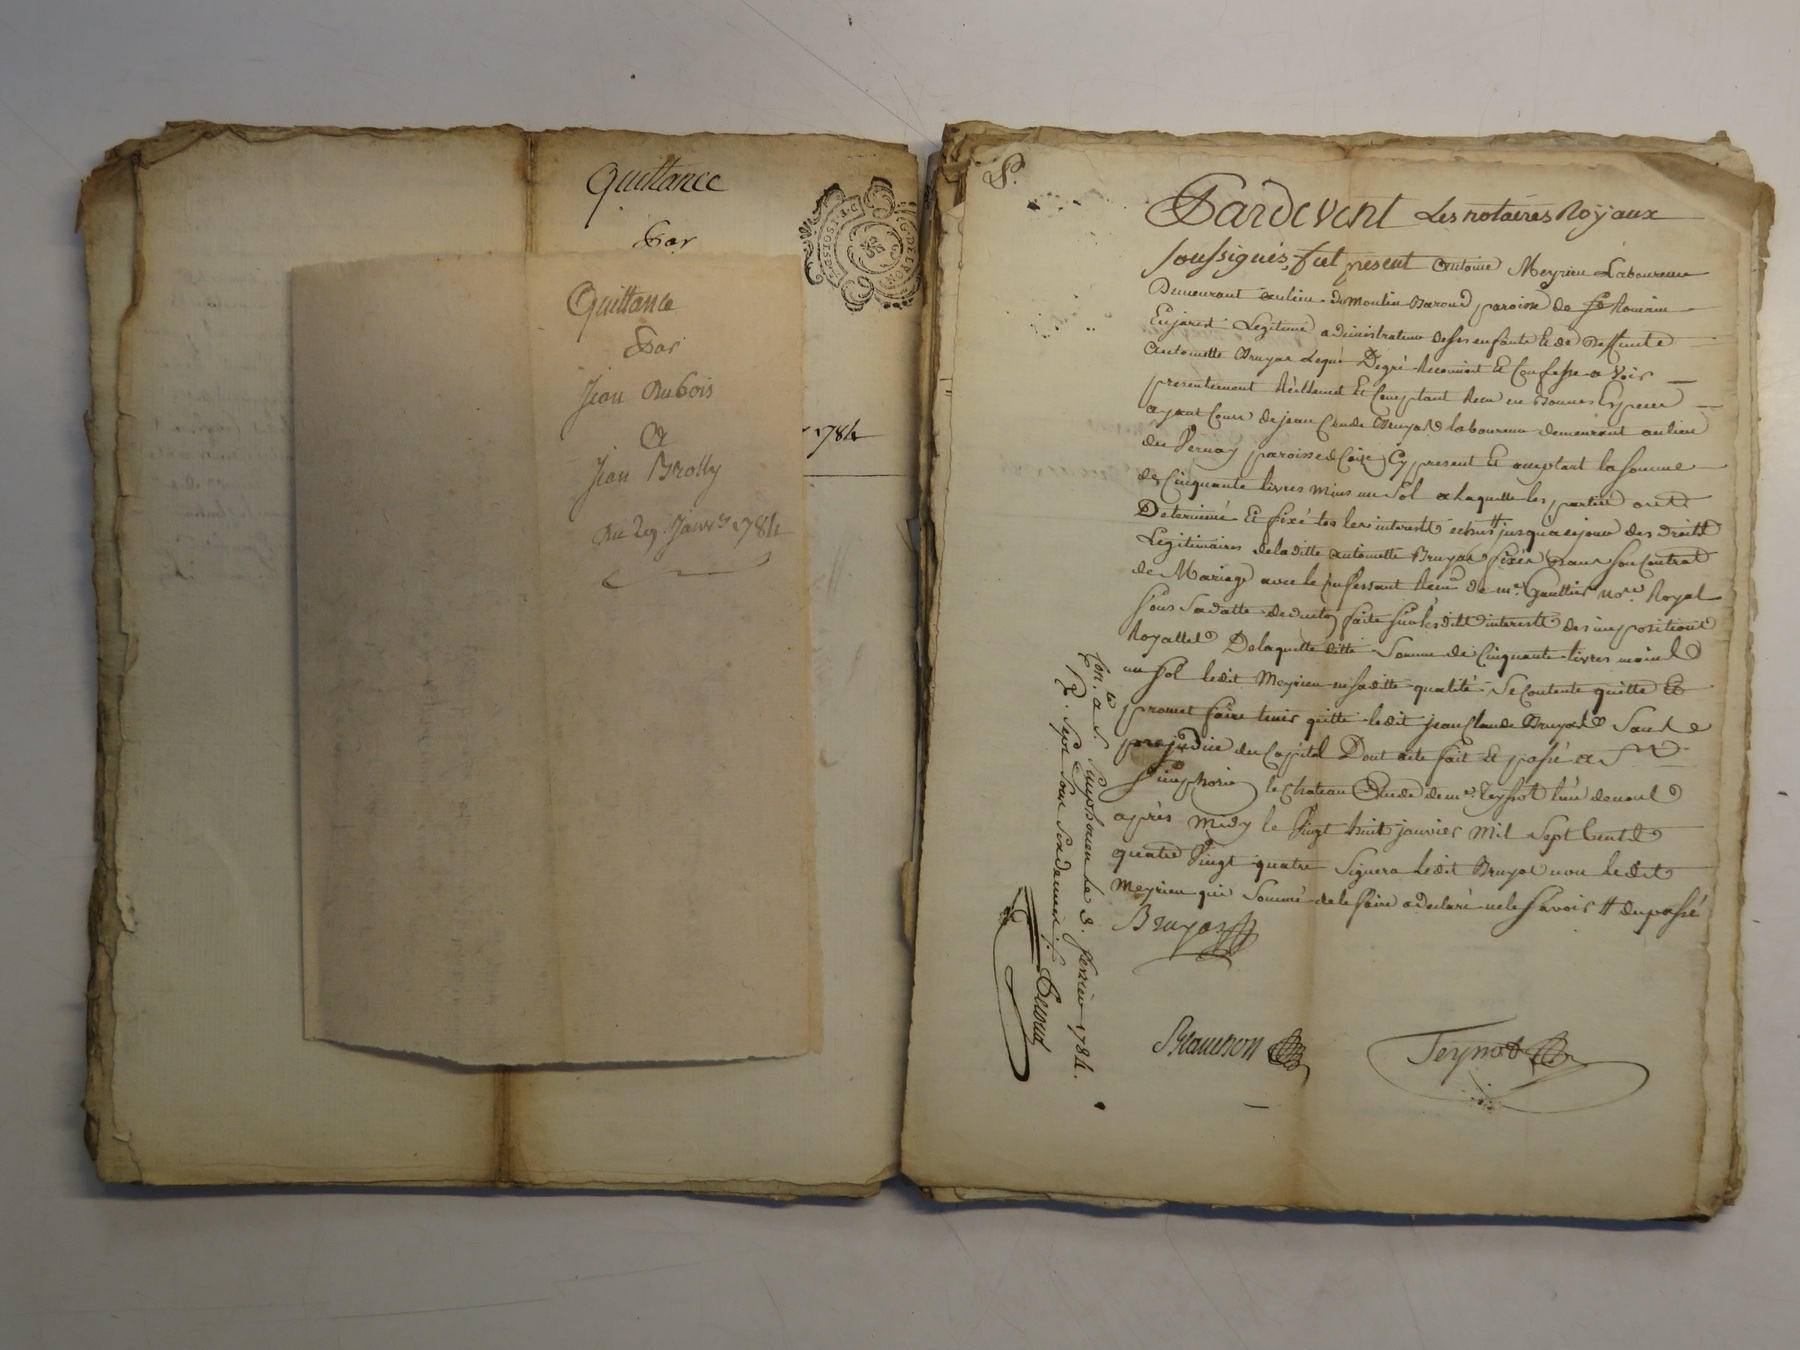 Quittance
Par
G. DE LYON
DEUX SOLS
1784
Quittance
Par
Jean Dubois
A
Jean Brolly
Du 29. Janv.er 1784
P.
Pardevent Les notaires Royaux
soussignés, fut present Antoine Meyrieu Laboureur
Demeurant au lieu du Moulin Baron paroisse de St Romain
Enjarest Legitime administrateur de ses enfants et de Deffunte
Antoinette Bruyas Lequel Degré Reconnoit et Confesse a Voir
presentement Réellement et Comptant Receu en Bonnes Especes
ayant Cours de jean Claude Bruyas laboureur demeurant au lieu
du Pernay paroisse de Coize Cy present et acceptant la somme
de Cinquante livres moins un Sol a laquelle les parties ont
Determiné et fixé tos les interestt echust jusqu'a ce jour des droitd
Legitimaires de la ditte Antoinette Bruyas fixés dans son Contrat
de Mariage avec le confessant Receu de me. Gaultier nore. Royal
sous Sa datte deduction faite sur les ditt interestt des impositions
Royalles Delaquelle ditte Somme de Cinquante livres moins
un sol ledit Meyrieu en saditte qualité Se Contente quitte Et
promet faire tenir quitte ledit jean Claude Bruyas Sans
prejudice du Capital Dont acte fait et passé a St
Simphorien le Chateau Etude de me. Teyssot l'un denous
après midy le Vingt huit janvier Mil Sept Cent
quatre Vingt quatre Signera ledit Bruyas non ledit
Meyrieu qui Sommé de le faire a Declaré ne le Savoir # du passé
Bruyas
Blanchon
Teyssot
Con. lé a S. Simphorien le 3. fevrier 1784.
R. Sept Sous Six deniers